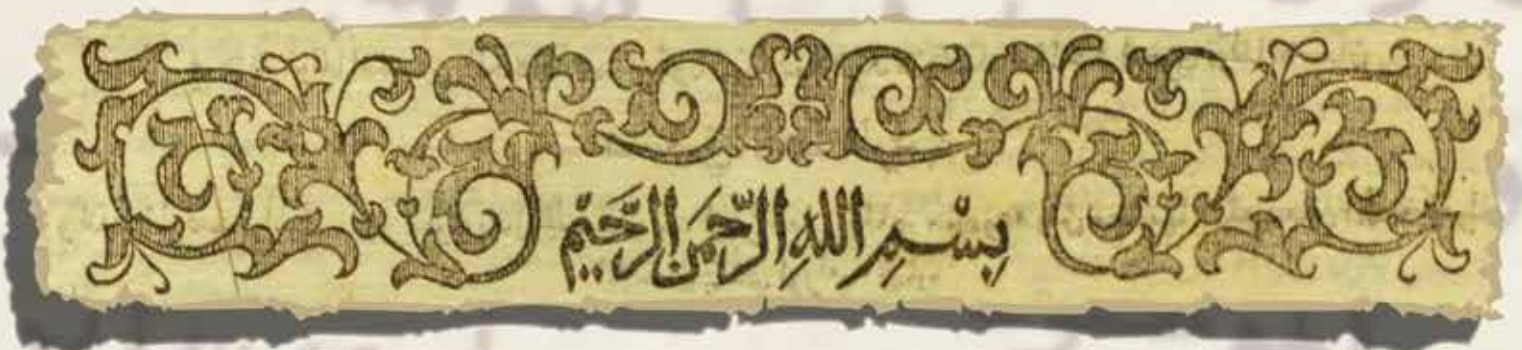 بِسْمِ اللهِ الرَّحْمَنِ الرَّحِيْمِ